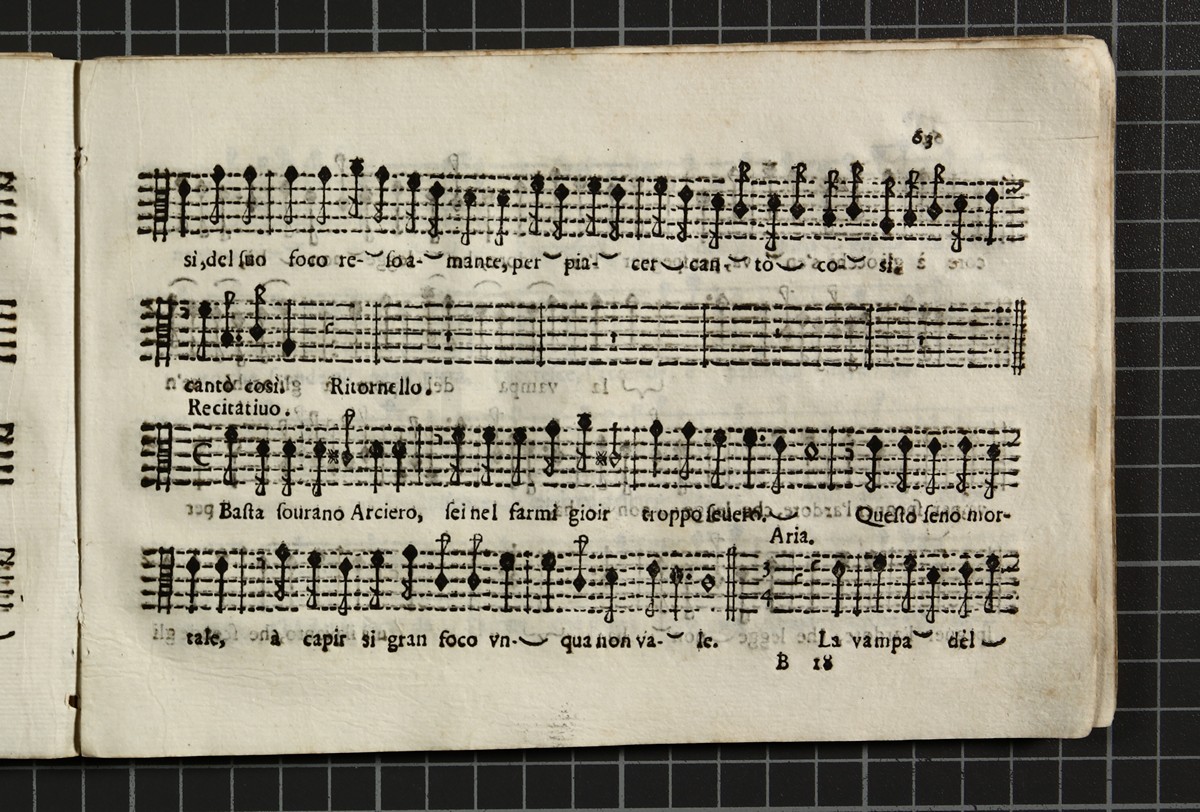 63
si, del suo foco re- so a- mante, per pia- cer can- tò co- sì.
cantò così. Ritornello.
Recitatiuo.
Basta sourano Arciero, sei nel farmi gioir troppo seuero. Questo seno mor-
Aria.
tale, à capir si gran foco vn- qua non va- le. La vampa del
B 18